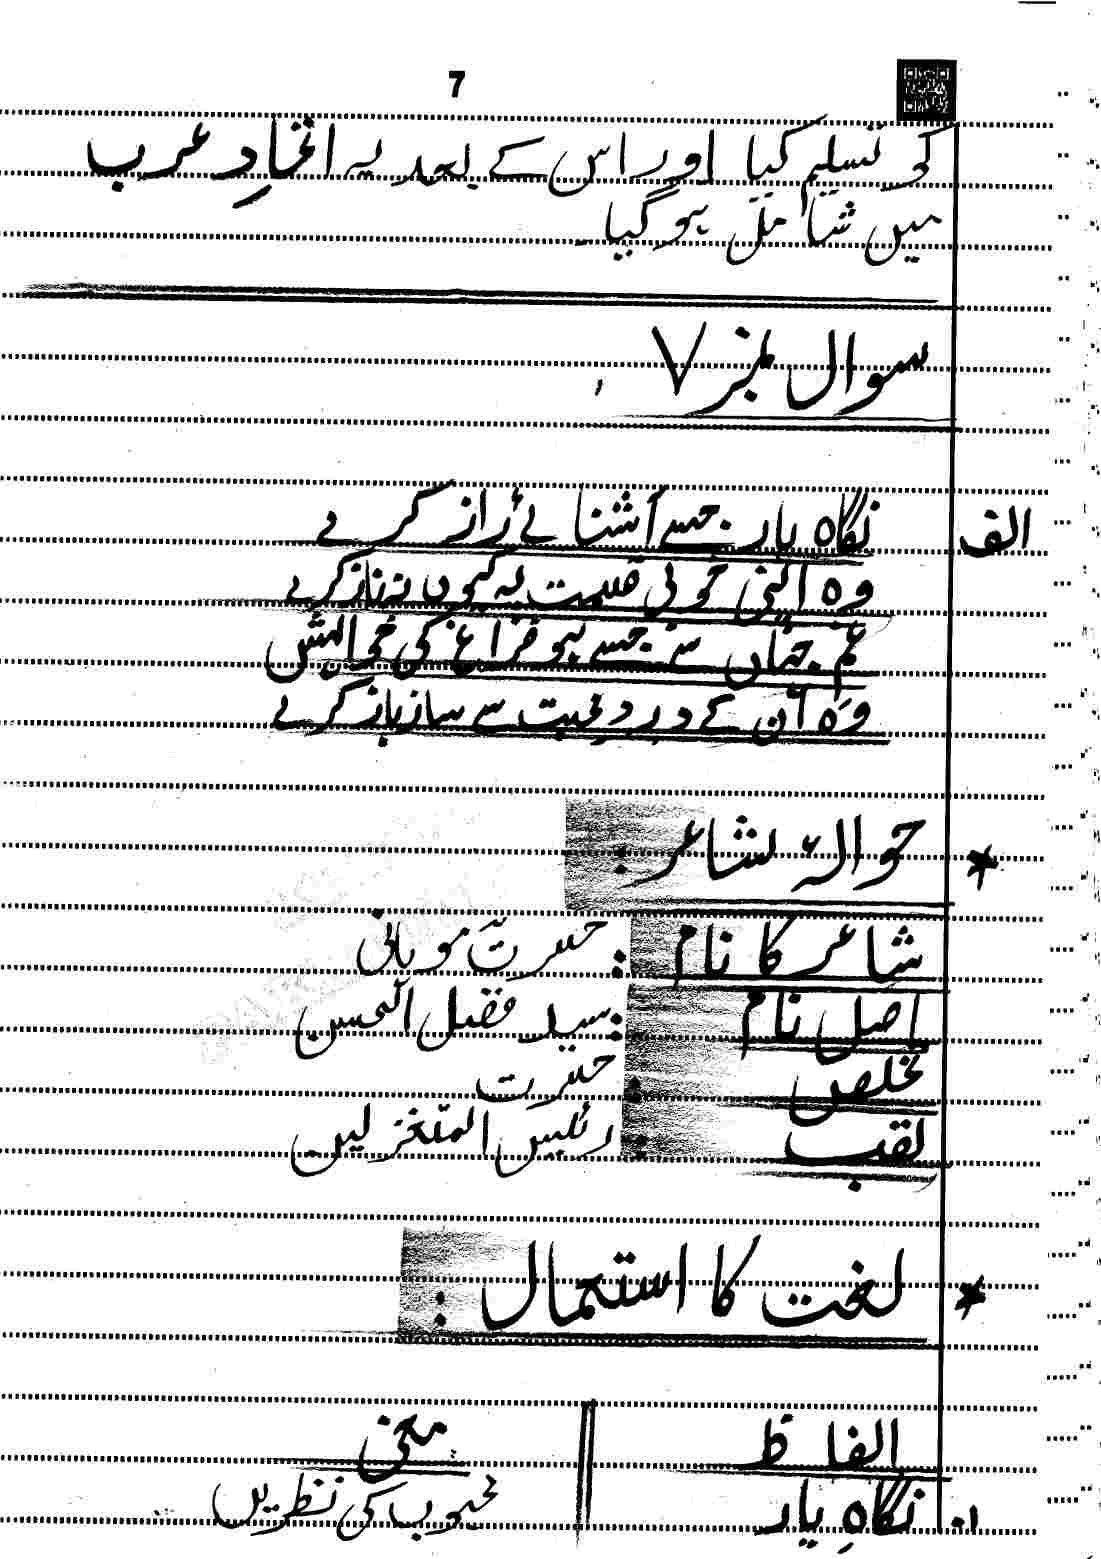 7
کو تسلیم کیا اور اس کے بعد یہ اتحادِ عرب
میں شامل ہو گیا۔
سوال نمبر ۷
الف نگاہ یار جسے آشنائے راز کرے
وہ اپنی خوبی قسمت پہ کیوں نہ ناز کرے
غم جہاں سے جسے ہو فراغ کی خواہش
وہ اُن کے درد محبت سے ساز باز کرے
* حوالۂ شاعر :
شاعر کا نام : حسرت موہانی
اصل نام : سید فضل الحسن
تخلص : حسرت
لقب : رئیس المتغزلین
* لغت کا استعمال :
الفاظ معنی
۱۔ نگاہِ یار محبوب کی نظریں